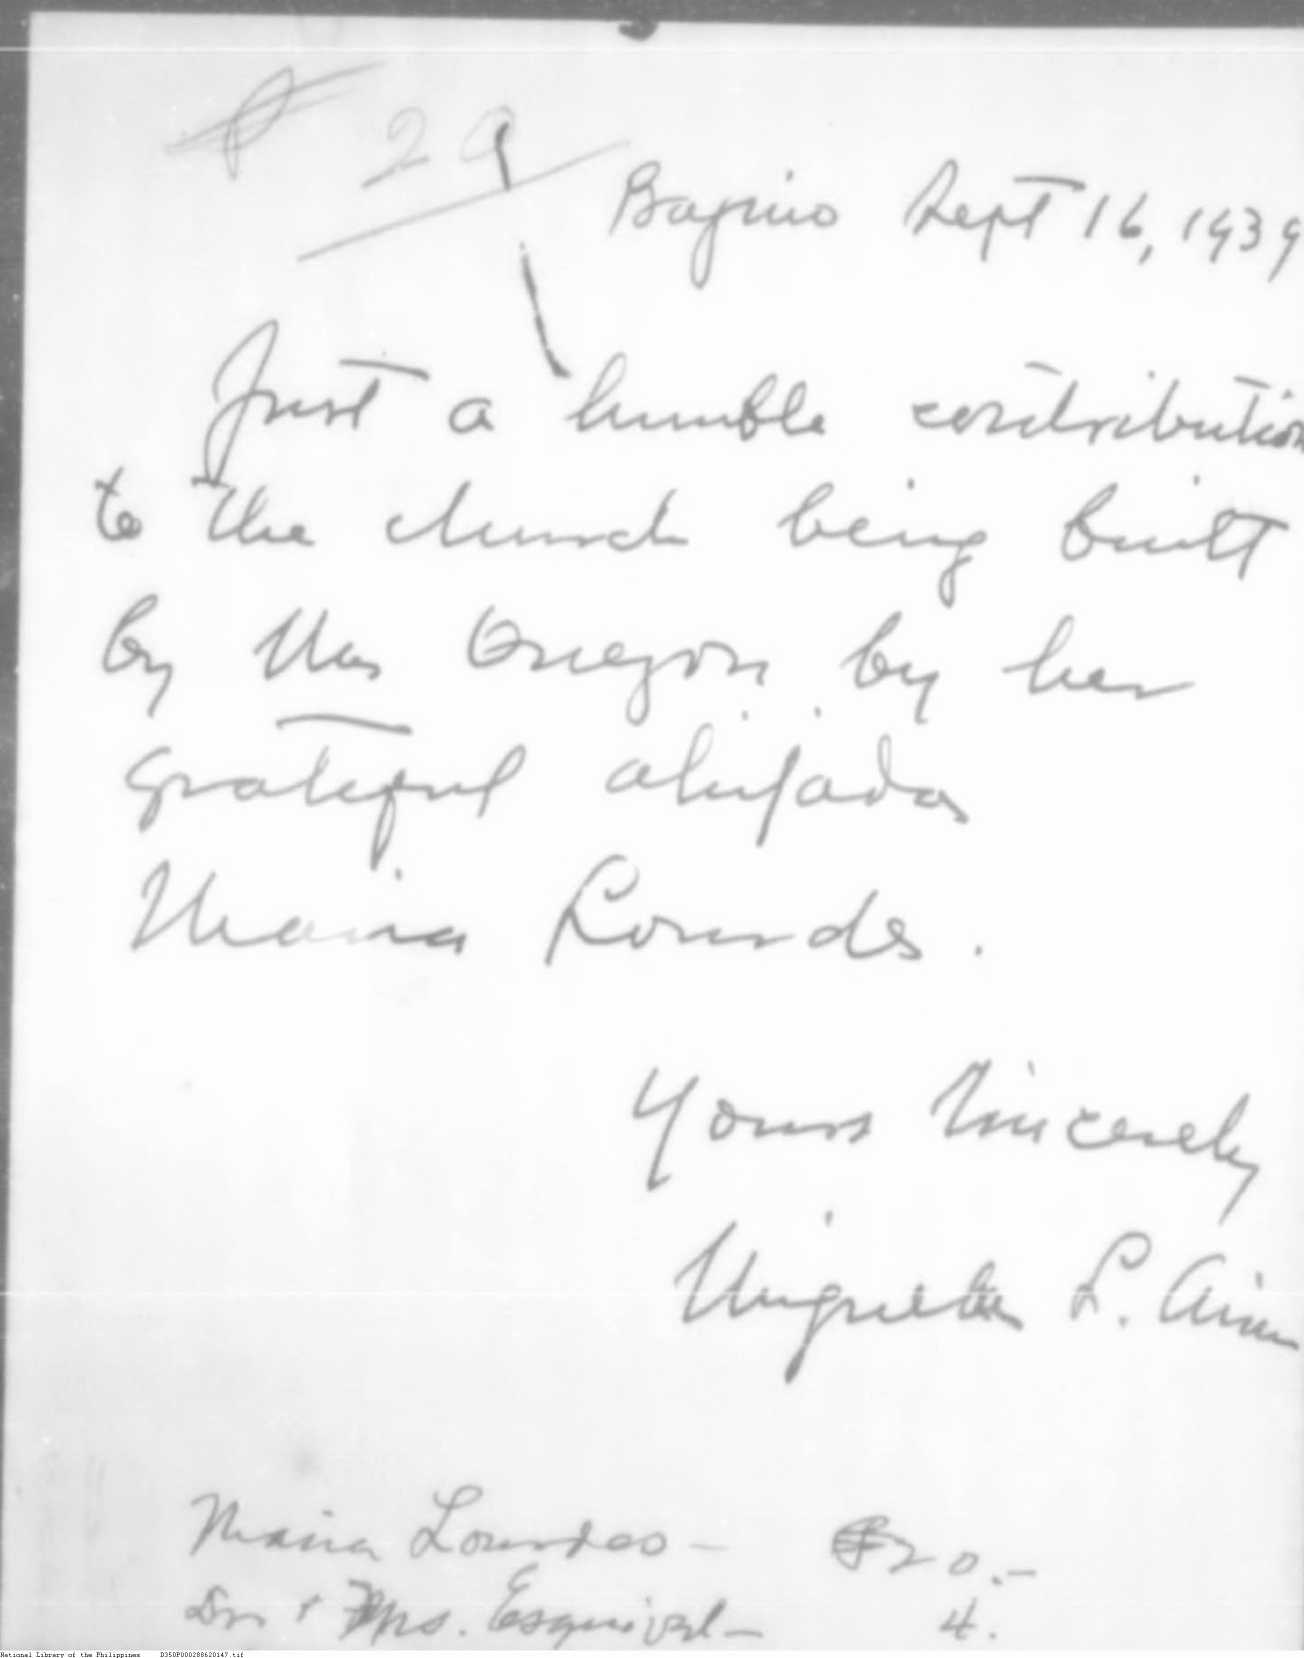 ₱ 29
Baguio Sept 16, 1939
Just a humble contribution
to the church being built
by Mrs Quezon by her
grateful ahijada
Maria Lourdes.
Yours Sincerely
L.
Maria Lourdes — ₱20.-
Dr & Mrs. Esquivel — 4.
National Library of the Philippines D350P000288620147.tif